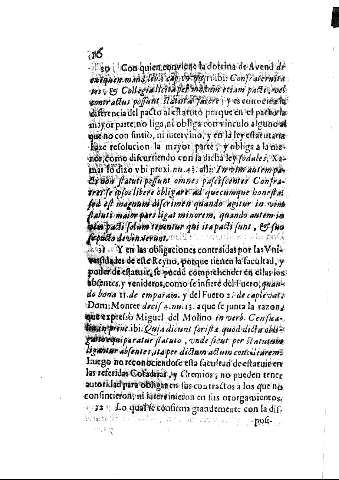 16
30 Con quien conviene la dotrina de Avend. de
exequen. mand. lib. 2. cap. 19. ibi: Confraternita
tes, & Collegia licita per maxim etiam pacti, vel
contractus possunt statuta facere; y es conocida la
diferencia del pacto al estatuto porque en el pacto la
mayor parte, no liga, ni obliga con vinculo alguno al
que no sintio, ni intervino, y en la ley estatutaria
haze resolucion la mayor parte, y obliga a la me-
nor, como discurriendo con la dicha ley sodales, Xa-
mar lo dixo vbi proxi. nu. 43. alli: In vim autem pa-
cti non statuti possunt omnes paciscenter Confra-
tres se ipsos libere obligare ad quecumque honesta:
sed est magnum discrimen quando agitur in vim
statuti maior pars ligat minorem, quando autem in
vim pacti solum tenentur qui ita pacti sunt, & suo
se pacto devinxerunt.
31 Y en las obligaciones contraidas por las Vni-
versidades de este Reyno, porque tienen la facultad, y
poder de estatuir, se puede comprehender en ellas los
absentes, y venideros, como se infiere del Fuero, quan-
do bona 11. de emparam. y del Fuero 2. de caplevat.
Dom. Monter decis. 4. nu. 13. aqui se junta la razon
que expresso Miguel del Molino in verb. Censua-
lia, in princ. ibi: Quia dicunt foristæ quod dicta obli-
gatio equiparatur statuto, unde sicut per statutum
ligantur absentes, ita per dictum actum censiliatarum.
Luego no reconociendose esta facultad de estatuir en
las referidas Cofadrias, y Gremios, no pueden tener
autoridad para obligar en sus contractos a los que no
consintieron, ni intervinieron en sus otorgamientos.
32 Lo qual se confirma grandemente con la dis-
pos-